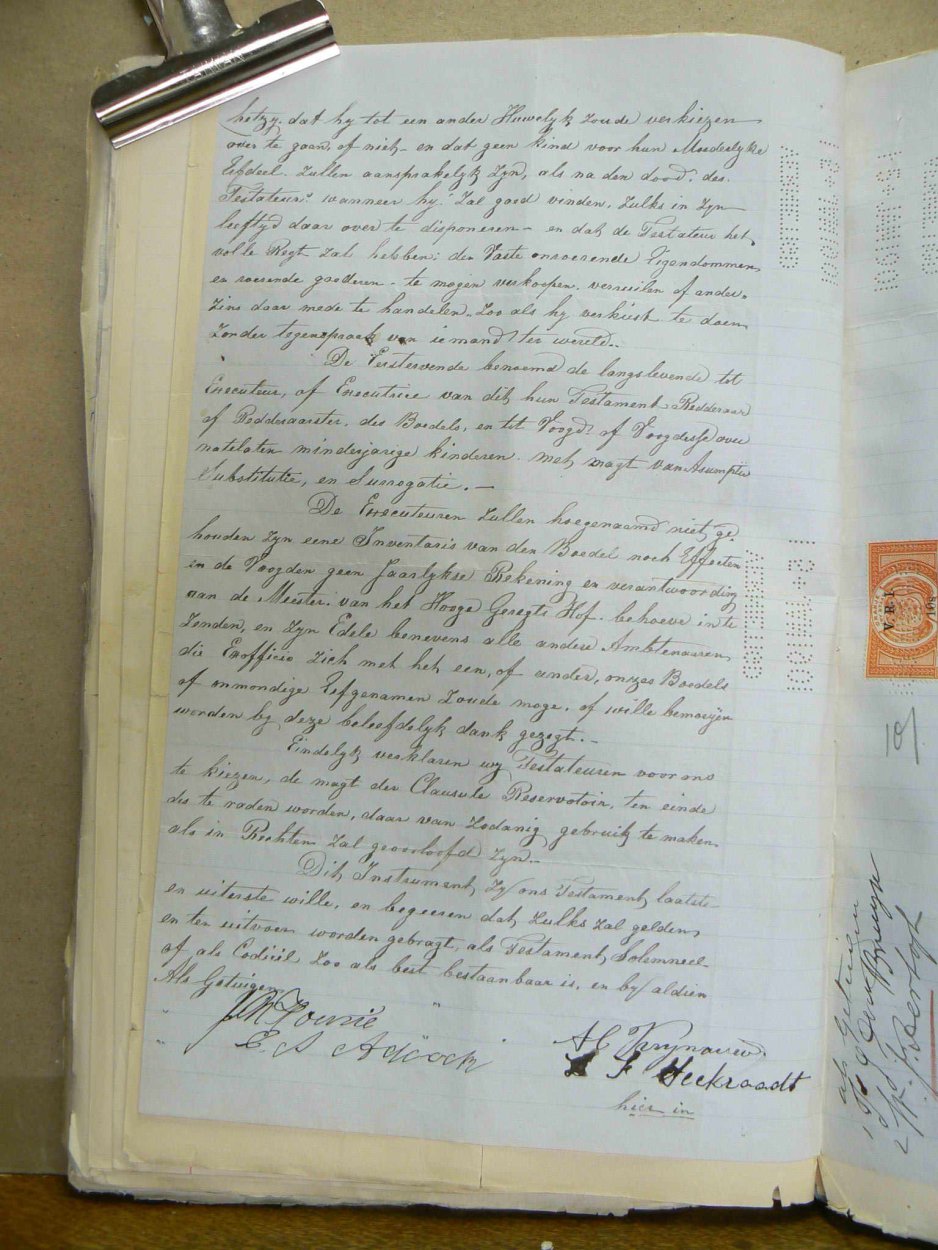 hetzy. dat hy tot een ander Huwelyk zoude verkiezen
over te gaan, of niet – en dat geen kind voor hun Moederlyke
Erfdeel zullen aansprakelyk zyn, als na den dood des
Testateur" wanneer hy "zal goed vinden, zulks in zyn
leeftyd daar over te disponeren – en dat de Testateur het
volle Regt zal hebben: den Vaste onroerende Eigendommen
en roerende goederen – te mogen verkoopen, verruilen of ander„
zins daar mede te handelen„ zoo als hy verkiest te doen
zonder tegenspraek van iemand ter wereld„
De Eerstervende benoemd de langslevende tot
Executeur, of Executrice van dit hun Testament, Redderaar
of Redderaarster, des Boedels, en tot Voogd of Voogdesse over
natelaten minderjarige kinderen met magt van Asumptie
Substitutie, en Surrogatie. –
De Executeuren zullen hoegenaamd niet ge„
houden zyn eene Inventaris van den Boedel noch Effecten
en de Voogden geen Jaarlykse Rekening en verantwoording
van de Meester van het Hooge Geregts Hof behoeve in te
zenden, en zyn Edele benevens alle andere Ambtenaren
die Exofficio zich met het een, of ander, onzes Boedels
of onmondige Erfgenamen zoude moge, of wille bemoeyen
worden by deze beleefdelyk dank gezegt. –
Eindelyk verklaren wy Testateuren voor ons
te kiezen, de magt der Clausule Reservatoir, ten einde
des te raden worden, daar van zodanig gebruik te maken
als in Rechten zal geoorloofd zyn –
Dit Instrument, zy ons Testament, laatste
en uiterste wille, en begeeren dat zulks zal gelden,
en ten uitvoer worden gebragt, als Testament, Solemneel
of als Codicil zoo als best bestaanbaar is, en by aldien
Als Getuigen
E. A. Adcock
hier in
V.R.I.
als Getuigen